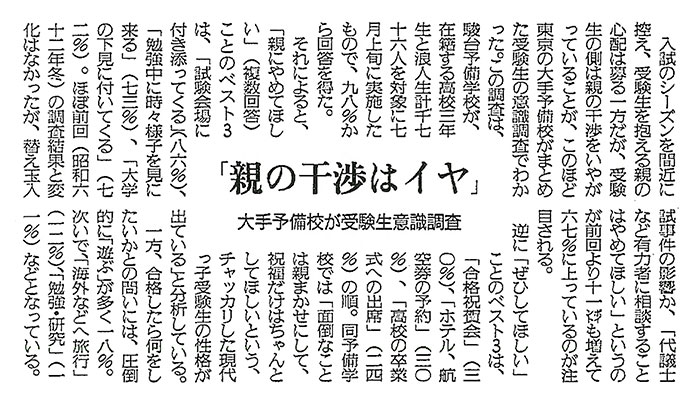 「親の干渉はイヤ」
大手予備校が受験生意識調査
　入試のシーズンを間近に
控え、受験生を抱える親の
心配は募る一方だが、受験
生の側は親の干渉をいやが
っていることが、このほど
東京の大手予備校がまとめ
た受験生の意識調査でわか
った。この調査は、
駿台予備学校が、
在籍する高校三年
生と浪人生計千七
十六人を対象に七
月上旬に実施した
もので、九八％か
ら回答を得た。
　それによると、
「親にやめてほし
い」（複数回答）
ことのベスト3
は、「試験会場に
付き添ってくる」（八六％）、
「勉強中に時々様子を見に
来る」（七三％）、「大学
の下見に付いてくる」（七
二％）。ほぼ前回（昭和六
十二年冬）の調査結果と変
化はなかったが、替え玉入
試事件の影響か、「代議士
など有力者に相談すること
はやめてほしい」というの
が前回より十一㌽も増えて
六七％に上っているのが注
目される。
　逆に「ぜひしてほしい」
ことのベスト3は、
「合格祝賀会」（三
〇％）、「ホテル、航
空券の予約」（三〇
％）、「高校の卒業
式への出席」（二四
％）の順。同予備学
校では「面倒なこと
は親まかせにして、
祝福だけはちゃんと
してほしいという、
チャッカリした現代
っ子受験生の性格が
出ている」と分析している。
　一方、合格したら何をし
たいかとの問いには、圧倒
的に「遊ぶ」が多く一八％。
次いで、「海外などへ旅行」
（一二％）、「勉強・研究」（一
一％）などとなっている。